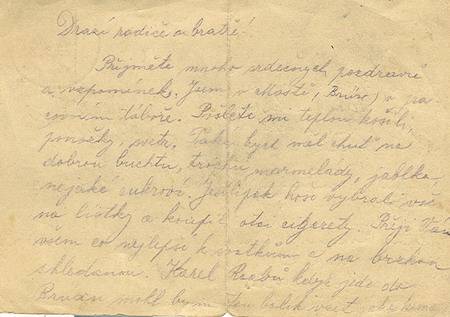 Drazí rodiče a bratře!
Přijměte mnoho srdečných pozdravů
a vzpomínek. Jsem v Mostě, (Brüx) v pra
covním táboře. Pošlete mi teplou košili,
ponožky, svetr. Také bych měl chuť na
dobrou buchtu, trochu marmelády, jablka
nejaké cukroví. Jestli jak hosi vybrali vše
na lístky a koupit otci cigarety. Přeji Vám
všem co nejlepší k svátkům a na brzkou
shledanou. Karel když jede do
Brna mohl by mi ten balík vzít